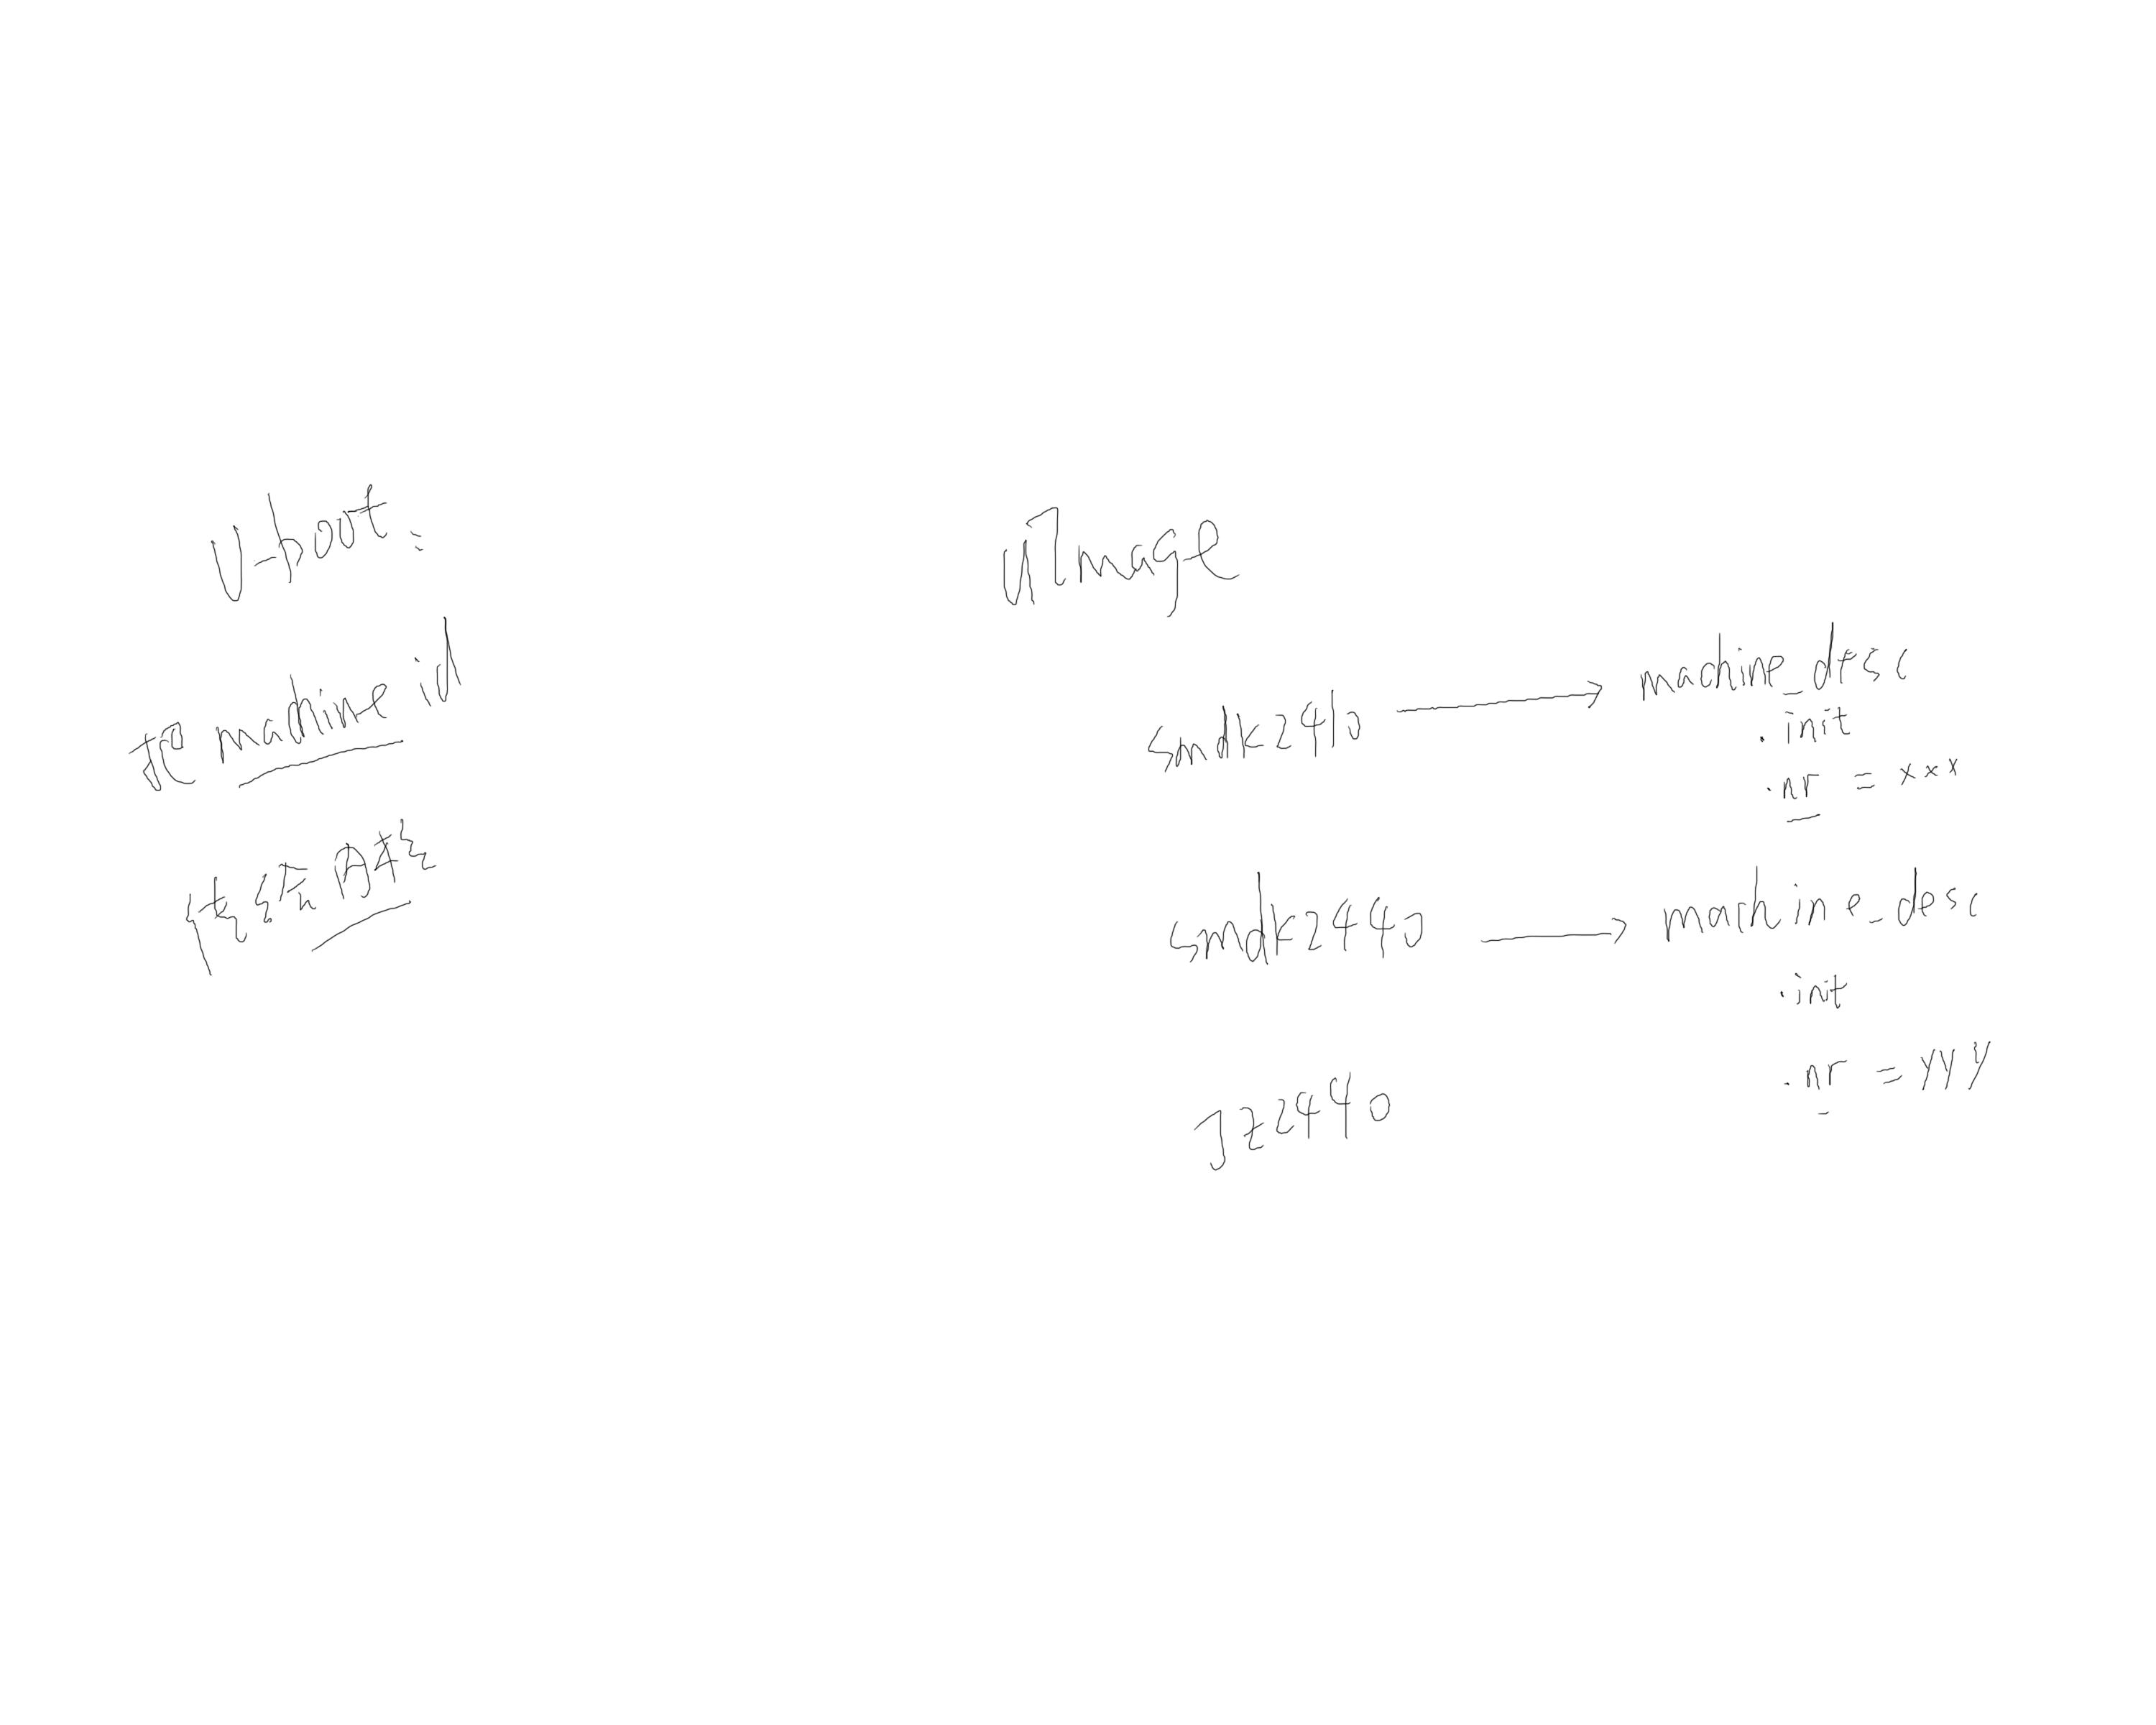 U-boot:
把 machine id
传给内核
uImage
smdk2410 → machine_desc
.init
.nr = xxx
smdk2440 → machine_desc
.init
.nr = yyy
JZ2440